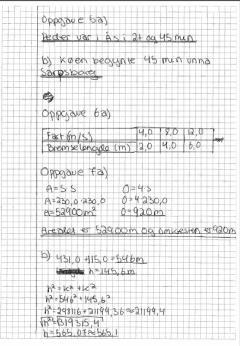 Oppgave 5a)
Peder var i Ås i 2t og 45 min
b) Køen begynte 45 min unna
Sarpsborg
Oppgave 6a)
Fart (m/s) 4,0 8,0 12,0
Bremselengde (m) 2,0 4,0 6,0
Oppgave 7a)
A=S·S O=4·S
A=230,0·230,0 O=4·230,0
A=52900m² O=920m
Arealet er 52900m og omkretsen er 920m
b) 431,0+115,0=546m
h=145,6m
h²=k²+k²
h²=546²+145,6²
h²=298116+21199,36≈21199,4
√h²=√319315,4
h=565,07≈565,1